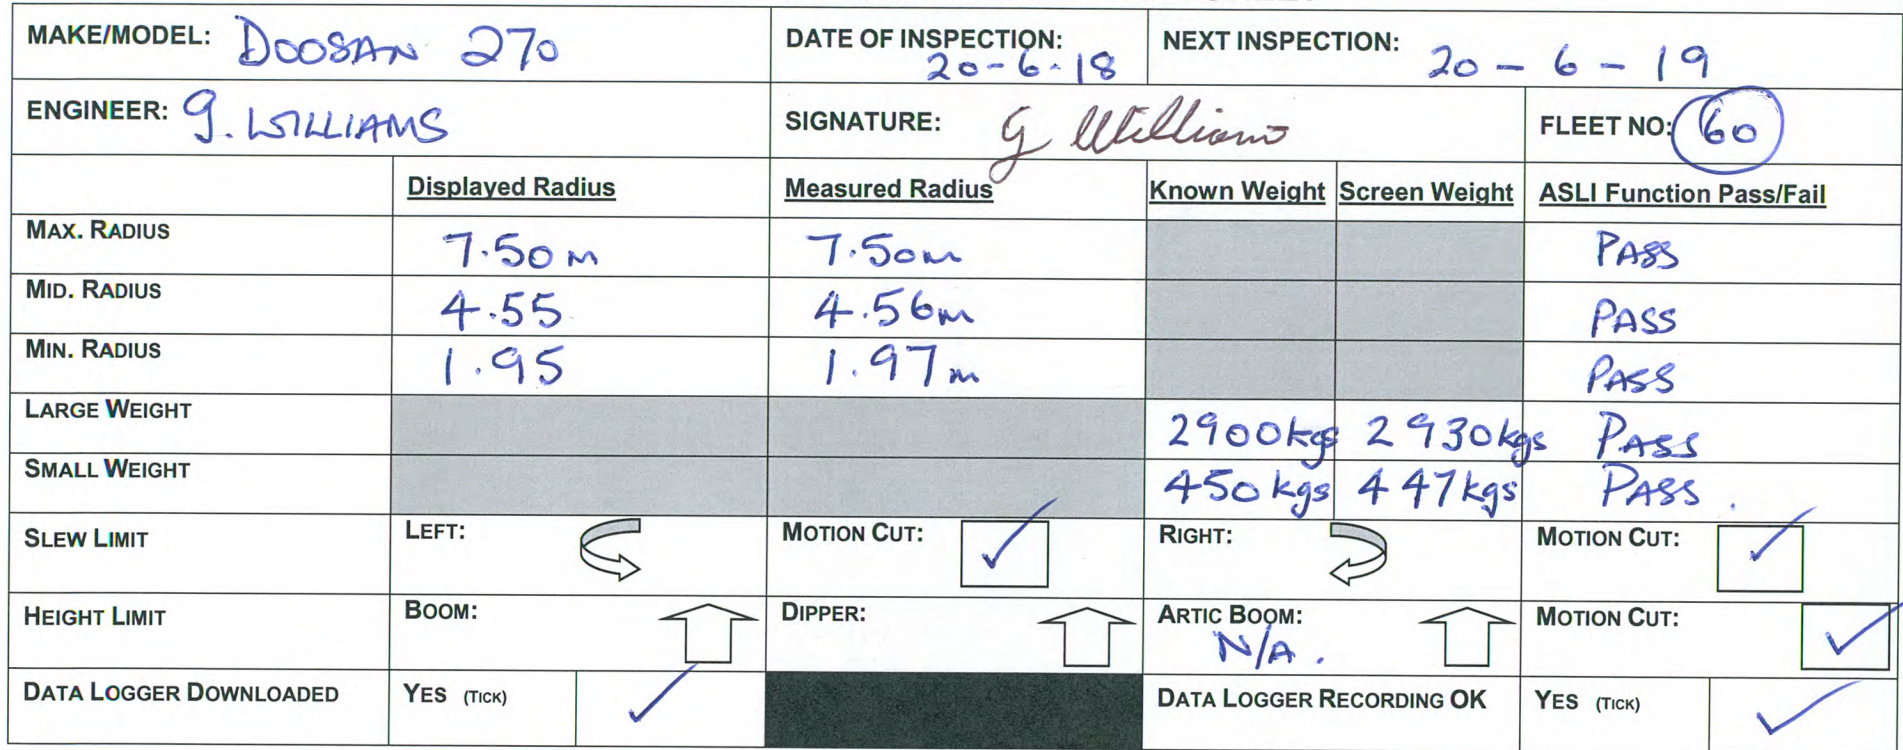 MAKE/MODEL: DOOSAN 270 DATE OF INSPECTION: 20-6-18 NEXT INSPECTION: 20-6-19
ENGINEER: G. WILLIAMS SIGNATURE: G Williams FLEET NO: 60
Displayed Radius Measured Radius Known Weight Screen Weight ASLI Function Pass/Fail
MAX. RADIUS 7.50m 7.50m PASS
MID. RADIUS 4.55 4.56m PASS
MIN. RADIUS 1.95 1.97m PASS
LARGE WEIGHT 2900kgs 2930kgs PASS
SMALL WEIGHT 450kgs 447kgs PASS.
SLEW LIMIT LEFT: MOTION CUT: ✓ RIGHT: MOTION CUT: ✓
HEIGHT LIMIT BOOM: DIPPER: ARTIC BOOM: N/A. MOTION CUT: ✓
DATA LOGGER DOWNLOADED YES (TICK) ✓ DATA LOGGER RECORDING OK YES (TICK) ✓